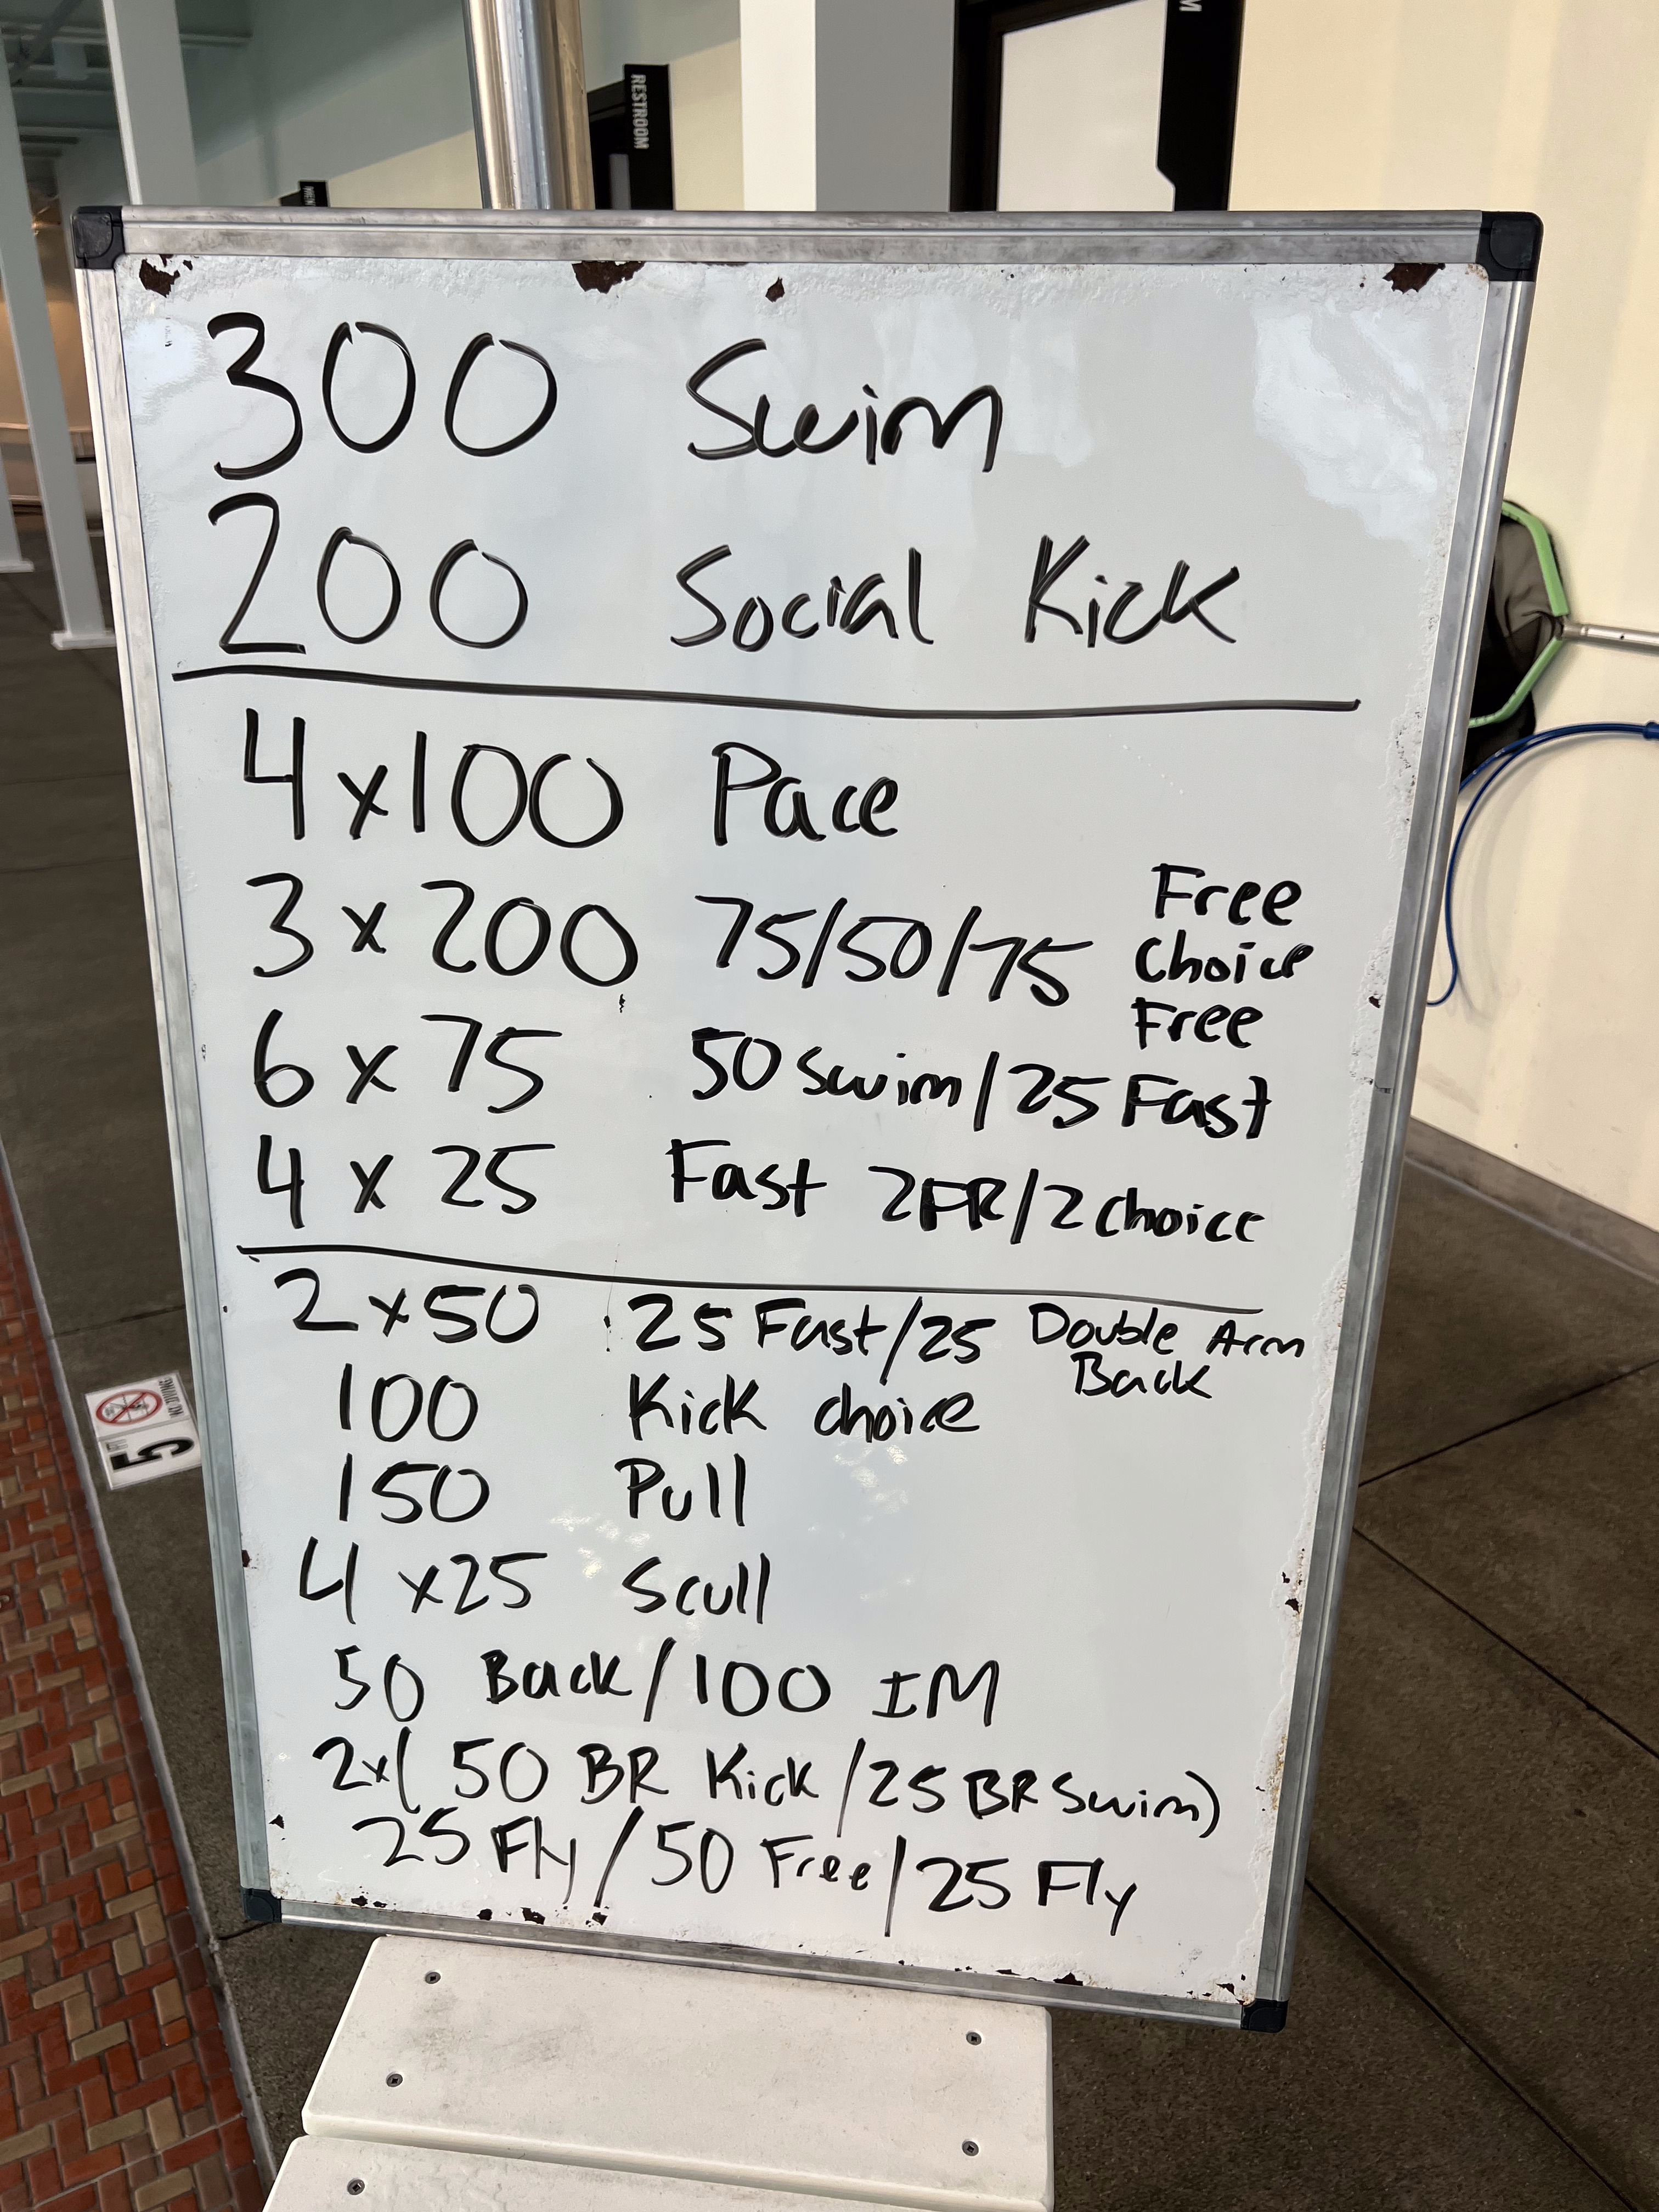 RESTROOM
MEN
M
300 Swim
200 Social Kick
4x100 Pace
3 x 200 75/50/75 Free Choice Free
6 x 75 50 Swim/25 Fast
4 x 25 Fast 2FR/2 choice
2x50 25 Fast/25 Double Arm Back
100 Kick choice
150 Pull
4 x25 Scull
50 Back/100 IM
2x(50 BR Kick/25 BR Swim)
25 Fly/50 Free/25 Fly
NO DIVING
5 FT